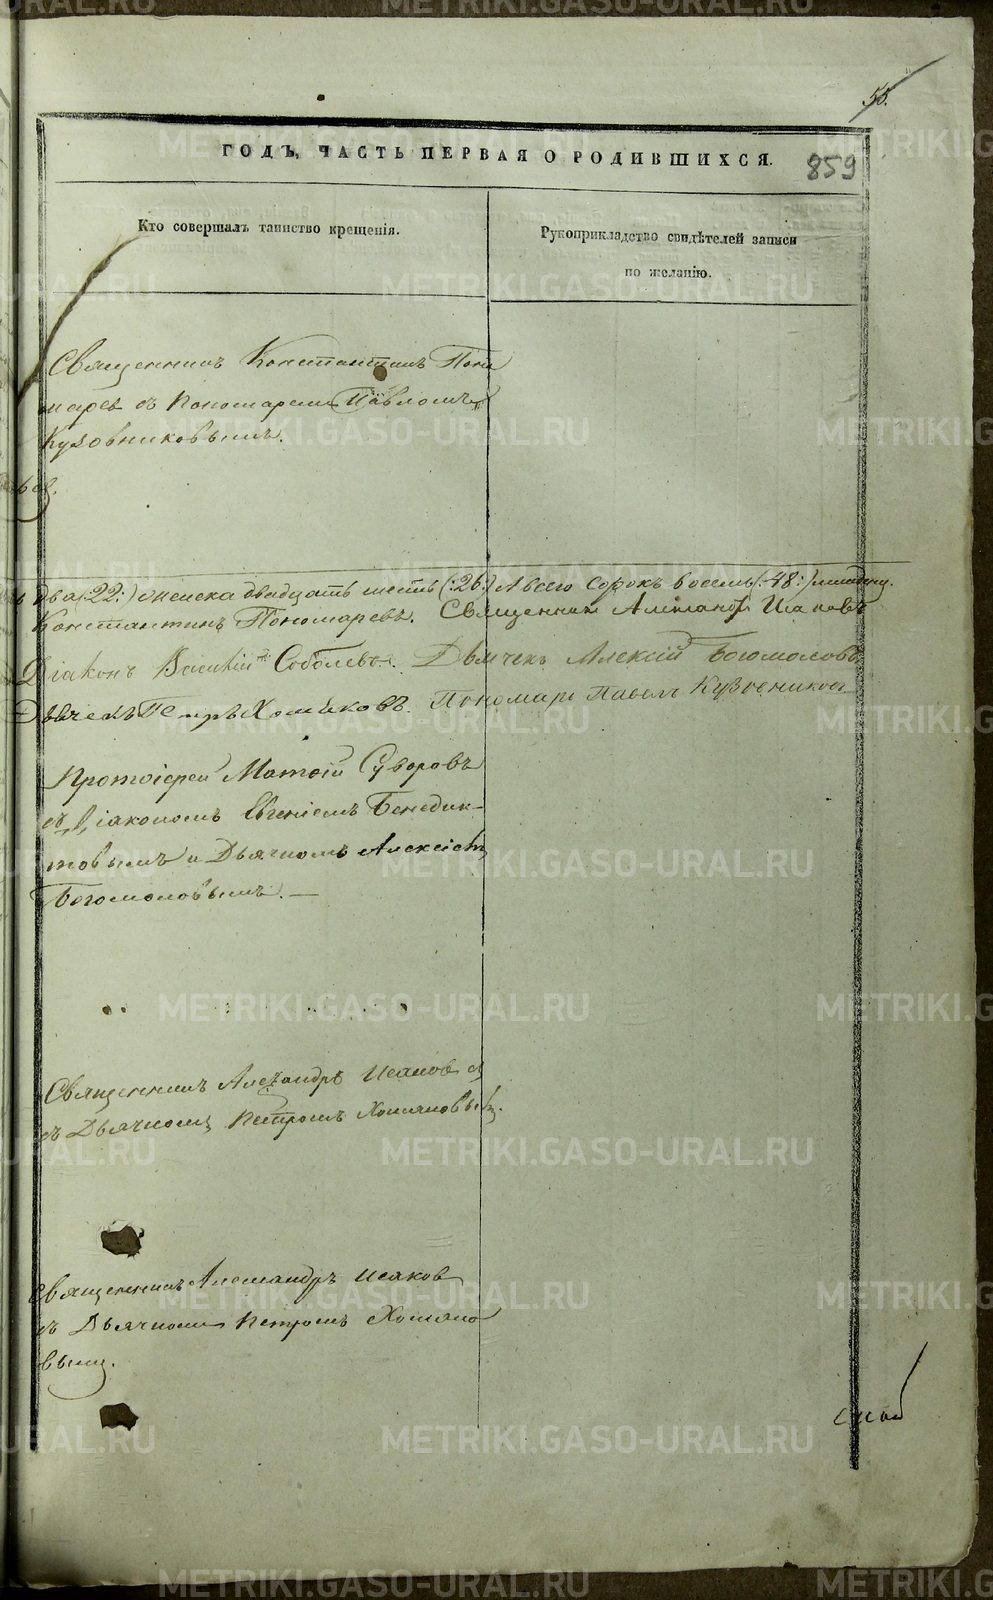 55.
ГОДЪ, ЧАСТЬ ПЕРВАЯ О РОДИВШИХСЯ. 859
Кто совершалъ таинство крещенія.
Рукоприкладство свидѣтелей записи
по желанію.
Священникъ Константинъ Поно
маревъ съ Пономаремъ Павломъ
Кузовниковымъ.
два (22:) женска двадцать шесть (:26:) А всего сорокъ восемь (:48:)
Константинъ Пономаревъ. Священникъ Александръ Исаковъ
Діаконъ Василій Соболевъ. Дьячекъ Алексій Богомоловъ
Дьячекъ Петръ Хомяковъ. Пономарь Павелъ Кузовниковъ
Протоіерей Матѳій Суворовъ
съ Діакономъ Евгеніемъ Бенедик-
товымъ и Дьячкомъ Алексіемъ
Богомоловымъ. —
Священникъ Александръ Исаковъ
съ Дьячкомъ Петромъ Хомяковымъ.
Священникъ Александръ Исаковъ
съ Дьячкомъ Петромъ Хомяко
вымъ.
METRIKI.GASO-URAL.RU